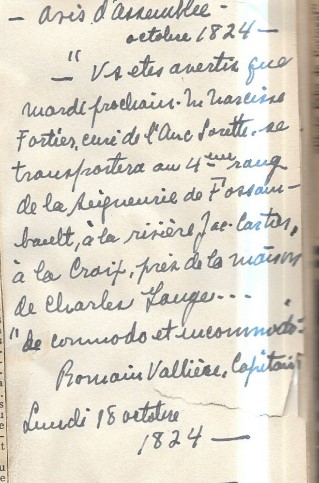 — Avis d'assemblée —
octobre 1824 —
— " Vs etes avertis que
mardi prochain. M. Narcisse
Fortier, curé de l'Anc Lorette. se
transportera au 4ème rang
de la Seigneurie de Fossam-
bault, à la rivière Jac-Cartier,
à la Croix, près de la maison
de Charles
"de commodo et incommodo"
Romain Vallière, Capitaine
Lundi 18 octobre
1824 —